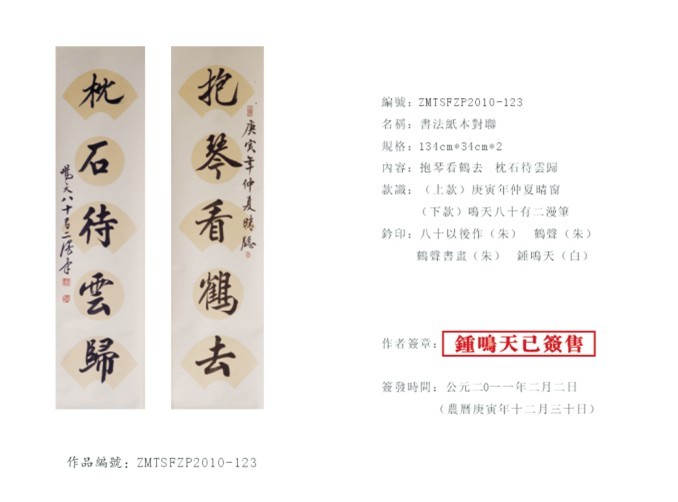 抱琴看鶴去
庚寅年仲夏晴窗
枕石待雲歸
鳴天八十有二漫筆
作品編號：ZMTSFZP2010-123
編號：ZMTSFZP2010-123
名稱：書法紙本對聯
規格：134cm*34cm*2
內容：抱琴看鶴去　枕石待雲歸
款識：（上款）庚寅年仲夏晴窗
（下款）鳴天八十有二漫筆
鈐印：八十以後作（朱）　鶴聲（朱）
鶴聲書畫（朱）　鍾鳴天（白）
作者簽章：鍾鳴天已簽售
簽發時間：公元二0一一年二月二日
（農曆庚寅年十二月三十日）